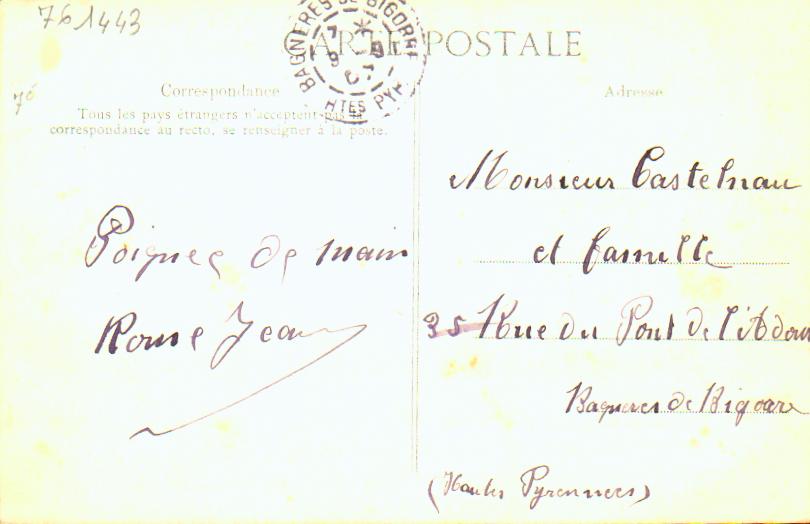 761443
CARTE POSTALE
BAGNÈRES DE BIGORRE
HTES PYR
Correspondance
Tous les pays étrangers n'acceptent pas la
correspondance au recto, se renseigner à la poste.
Poignee de main
Jean
Adresse
Monsieur Castelnau
et famille
35 Rue du Pont de l'Adour
Bagneres de Bigorre
(Hautes Pyrennees)